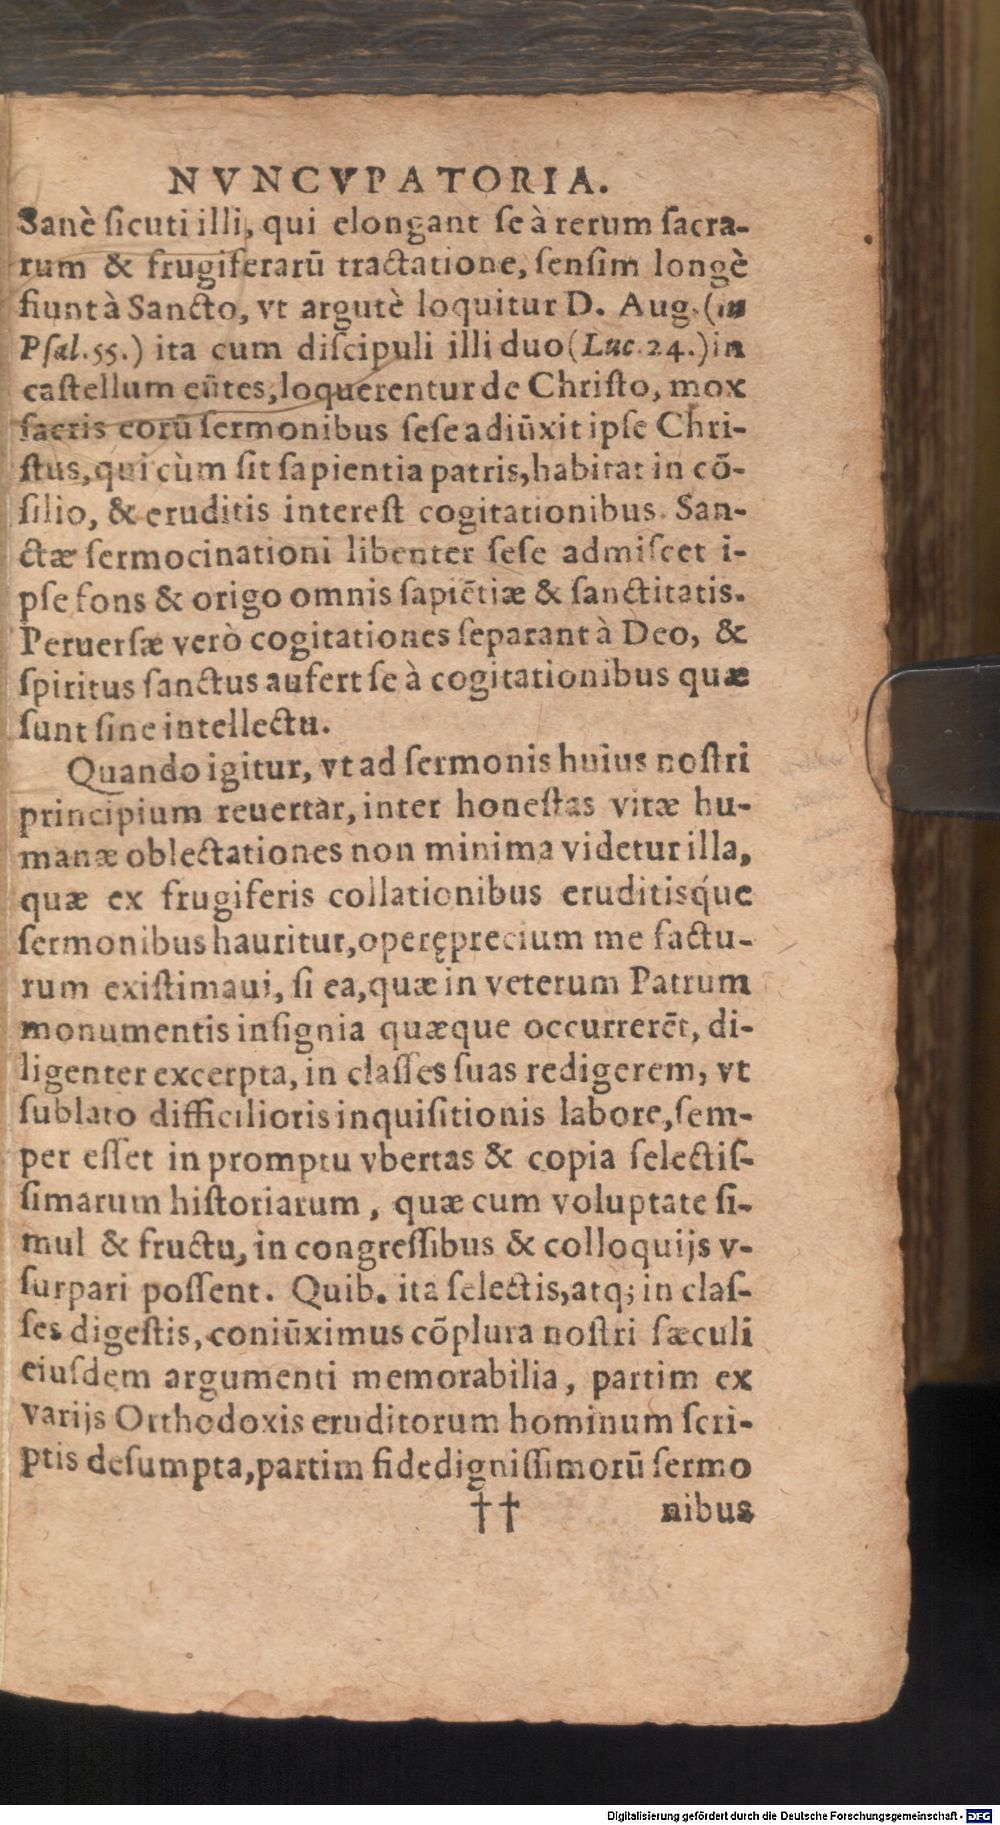 NVNCVPATORIA.
Sanè ſicuti illi, qui elongant ſe à rerum ſacra-
rum & frugiferarũ tractatione, ſenſim longè
fiunt à Sancto, vt argutè loquitur D. Aug. (in
Pſal. 55.) ita cum diſcipuli illi duo (Luc. 24.) in
caſtellum eũtes, loquerentur de Chriſto, mox
ſacris eorũ ſermonibus ſeſe adiũxit ipſe Chri-
ſtus, qui cùm ſit ſapientia patris, habitat in cõ-
ſilio, & eruditis intereſt cogitationibus. San-
ctæ ſermocinationi libenter ſeſe admiſcet i-
pſe fons & origo omnis ſapiẽtiæ & ſanctitatis.
Peruerſæ verò cogitationes ſeparant à Deo, &
ſpiritus ſanctus aufert ſe à cogitationibus quæ
ſunt ſine intellectu.
Quando igitur, vt ad ſermonis huius noſtri
principium reuertar, inter honeſtas vitæ hu-
manæ oblectationes non minima videtur illa,
quæ ex frugiferis collationibus eruditisq́ue
ſermonibus hauritur, operęprecium me factu-
rum exiſtimaui, ſi ea, quæ in veterum Patrum
monumentis inſignia quæque occurrerẽt, di-
ligenter excerpta, in claſſes ſuas redigerem, vt
ſublato difficilioris inquiſitionis labore, ſem-
per eſſet in promptu vbertas & copia ſelectiſ-
ſimarum hiſtoriarum, quæ cum voluptate ſi-
mul & fructu, in congreſſibus & colloquijs v-
ſurpari poſſent. Quib. ita ſelectis, atq; in claſ-
ſes digeſtis, coniũximus cõplura noſtri ſæculi
eiuſdem argumenti memorabilia, partim ex
varijs Orthodoxis eruditorum hominum ſcri-
ptis deſumpta, partim fidedigniſſimorũ ſermo
†† nibus
Digitalisierung gefördert durch die Deutsche Forschungsgemeinschaft - DFG